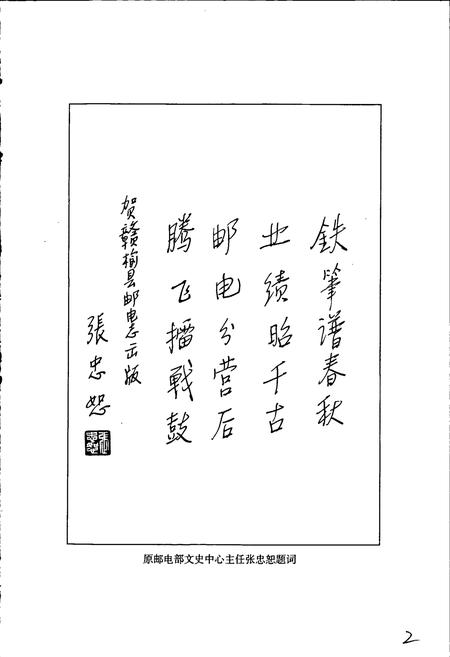 鉄筆谱春秋
业绩昭千古
邮电分营后
腾飞擂战鼓
贺赣榆县邮电志出版
張忠恕
原邮电部文史中心主任张忠恕题词
2